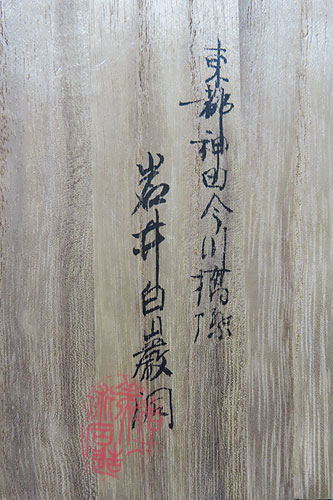 東都神田今川橋際
岩井白山巖洞